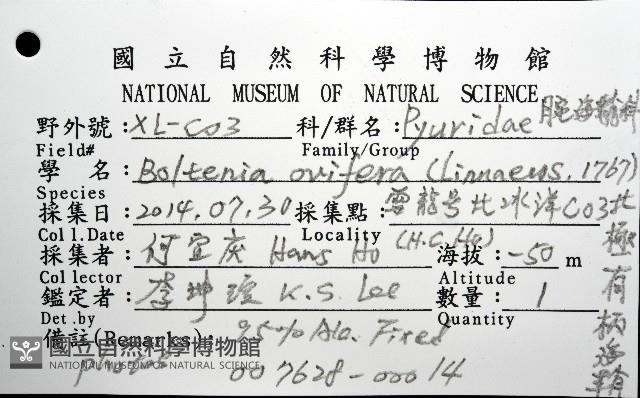 國立自然科學博物館
NATIONAL MUSEUM OF NATURAL SCIENCE
野外號：XL-C03 科/群名：Pyuridae 腕海鞘科
Field# Family/Group
學 名：Boltenia ovifera (Linnaeus, 1767)
Species
採集日：2014.07.30 採集點：雪龍号北冰洋C03
Coll.Date Locality
採集者：何宣慶 Hans Ho (H.C. Ho) 海拔：-50 m
Collector Altitude
鑑定者：李坤瑄 K.S. Lee 數量：1
Det.by Quantity
備註(Remarks)： 95% Alc. Fixed
photo 007628-00014
北極有柄海鞘
國立自然科學博物館
NATIONAL MUSEUM OF NATURAL SCIENCE